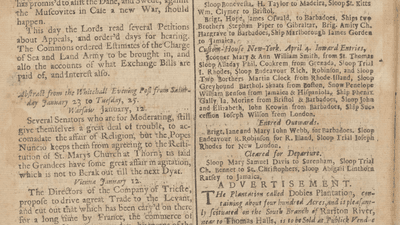 has promis'd to assist the Dane, and Swede, against
the Muscovites in Case a new War, should
happen.
This day the Lords read several Petitions
about Appeals, and order'd days for hearing.
The Commons ordered Estimates of the Charge
of Sea and Land Army to be brought in, and
also the accounts of what Exchange Bills are
paid of, and Interest also.
Abstract from the Whitehall Evening Post from Satur-
day January 23 to Tuesday, 25.
Warsaw January, 12.
Several Senators who are for Moderating, still
give themselves a great deal of trouble, to ac-
comodate the affair of Religion, but the Popes
Nuncio keeps them from agreeing to the Resti-
tution of St. Marys Church at Thorn; tis said
the Grandees have some great affair in agitation,
which is not to Break out till the next Dyat.
Vienna January 12.
The Directors of the Company of Trieste,
propose to drive agreat Trade to the Levant,
and cut out that which has been cary'd on there
for a long time by France, the commerce of
Sloop Bonevesia, Hs. Taylor to Madeira, Sloop St. Kitts
Wm. Clymer to Barbadoes.
Brigt, Hope, Janes Oswald, to Barbadoes, Ships two
Brothers Stephen Piper to Gibraltar, Brig. Amity Ch.
Hargrave to Barbadoes, Ship Marlborough James Gorden
to Jamaica.
Custom-House New-York. April 4. Inward Entries,
Scooner Mary & Ann William Smith, from St. Thomas
Sloop Kinsley Phil. Cockrem from Grenada, Sloop Trial
T. Rhodes, Sloop Endeavour Rich. Robinson, and Sloop
Two Borthers Martin Clock from Rhode-Island, Sloop
Greyhound Barthol. Shoars from Boston, Snow Penelope
William Benson from Jamaica & Hispaniola, Ship Henart
Gally Ja. Morine from Bristol & Barbadoes, Sloop John
and Elisabeth, John Rowsin from Barbadoes, Ship Suc-
cession Joseph Willson from London.
Entred Outwards.
Brigt, Iane and Mary John Webb, for Barbadoes. Sloop
Endeavour R. Robinson for R. Island, Sloop Trial Joseph
Rhodes for New London.
Cleared for Departure.
Sloop Mary Samuel Davis to Sorenham, Sloop Trial
Ch. Benet to St. Christophers, Sloop Abigail Einthorn
Ratsey to Jamaica.
ADVERTISEMENT.
The Plantation called Dobies Plantation, con-
taining about four hundred Acres, and it pleasant-
ly scituated on the South Branch of Rariton River,
near to Thomas Halls, is to be Sold at Publick Vendue